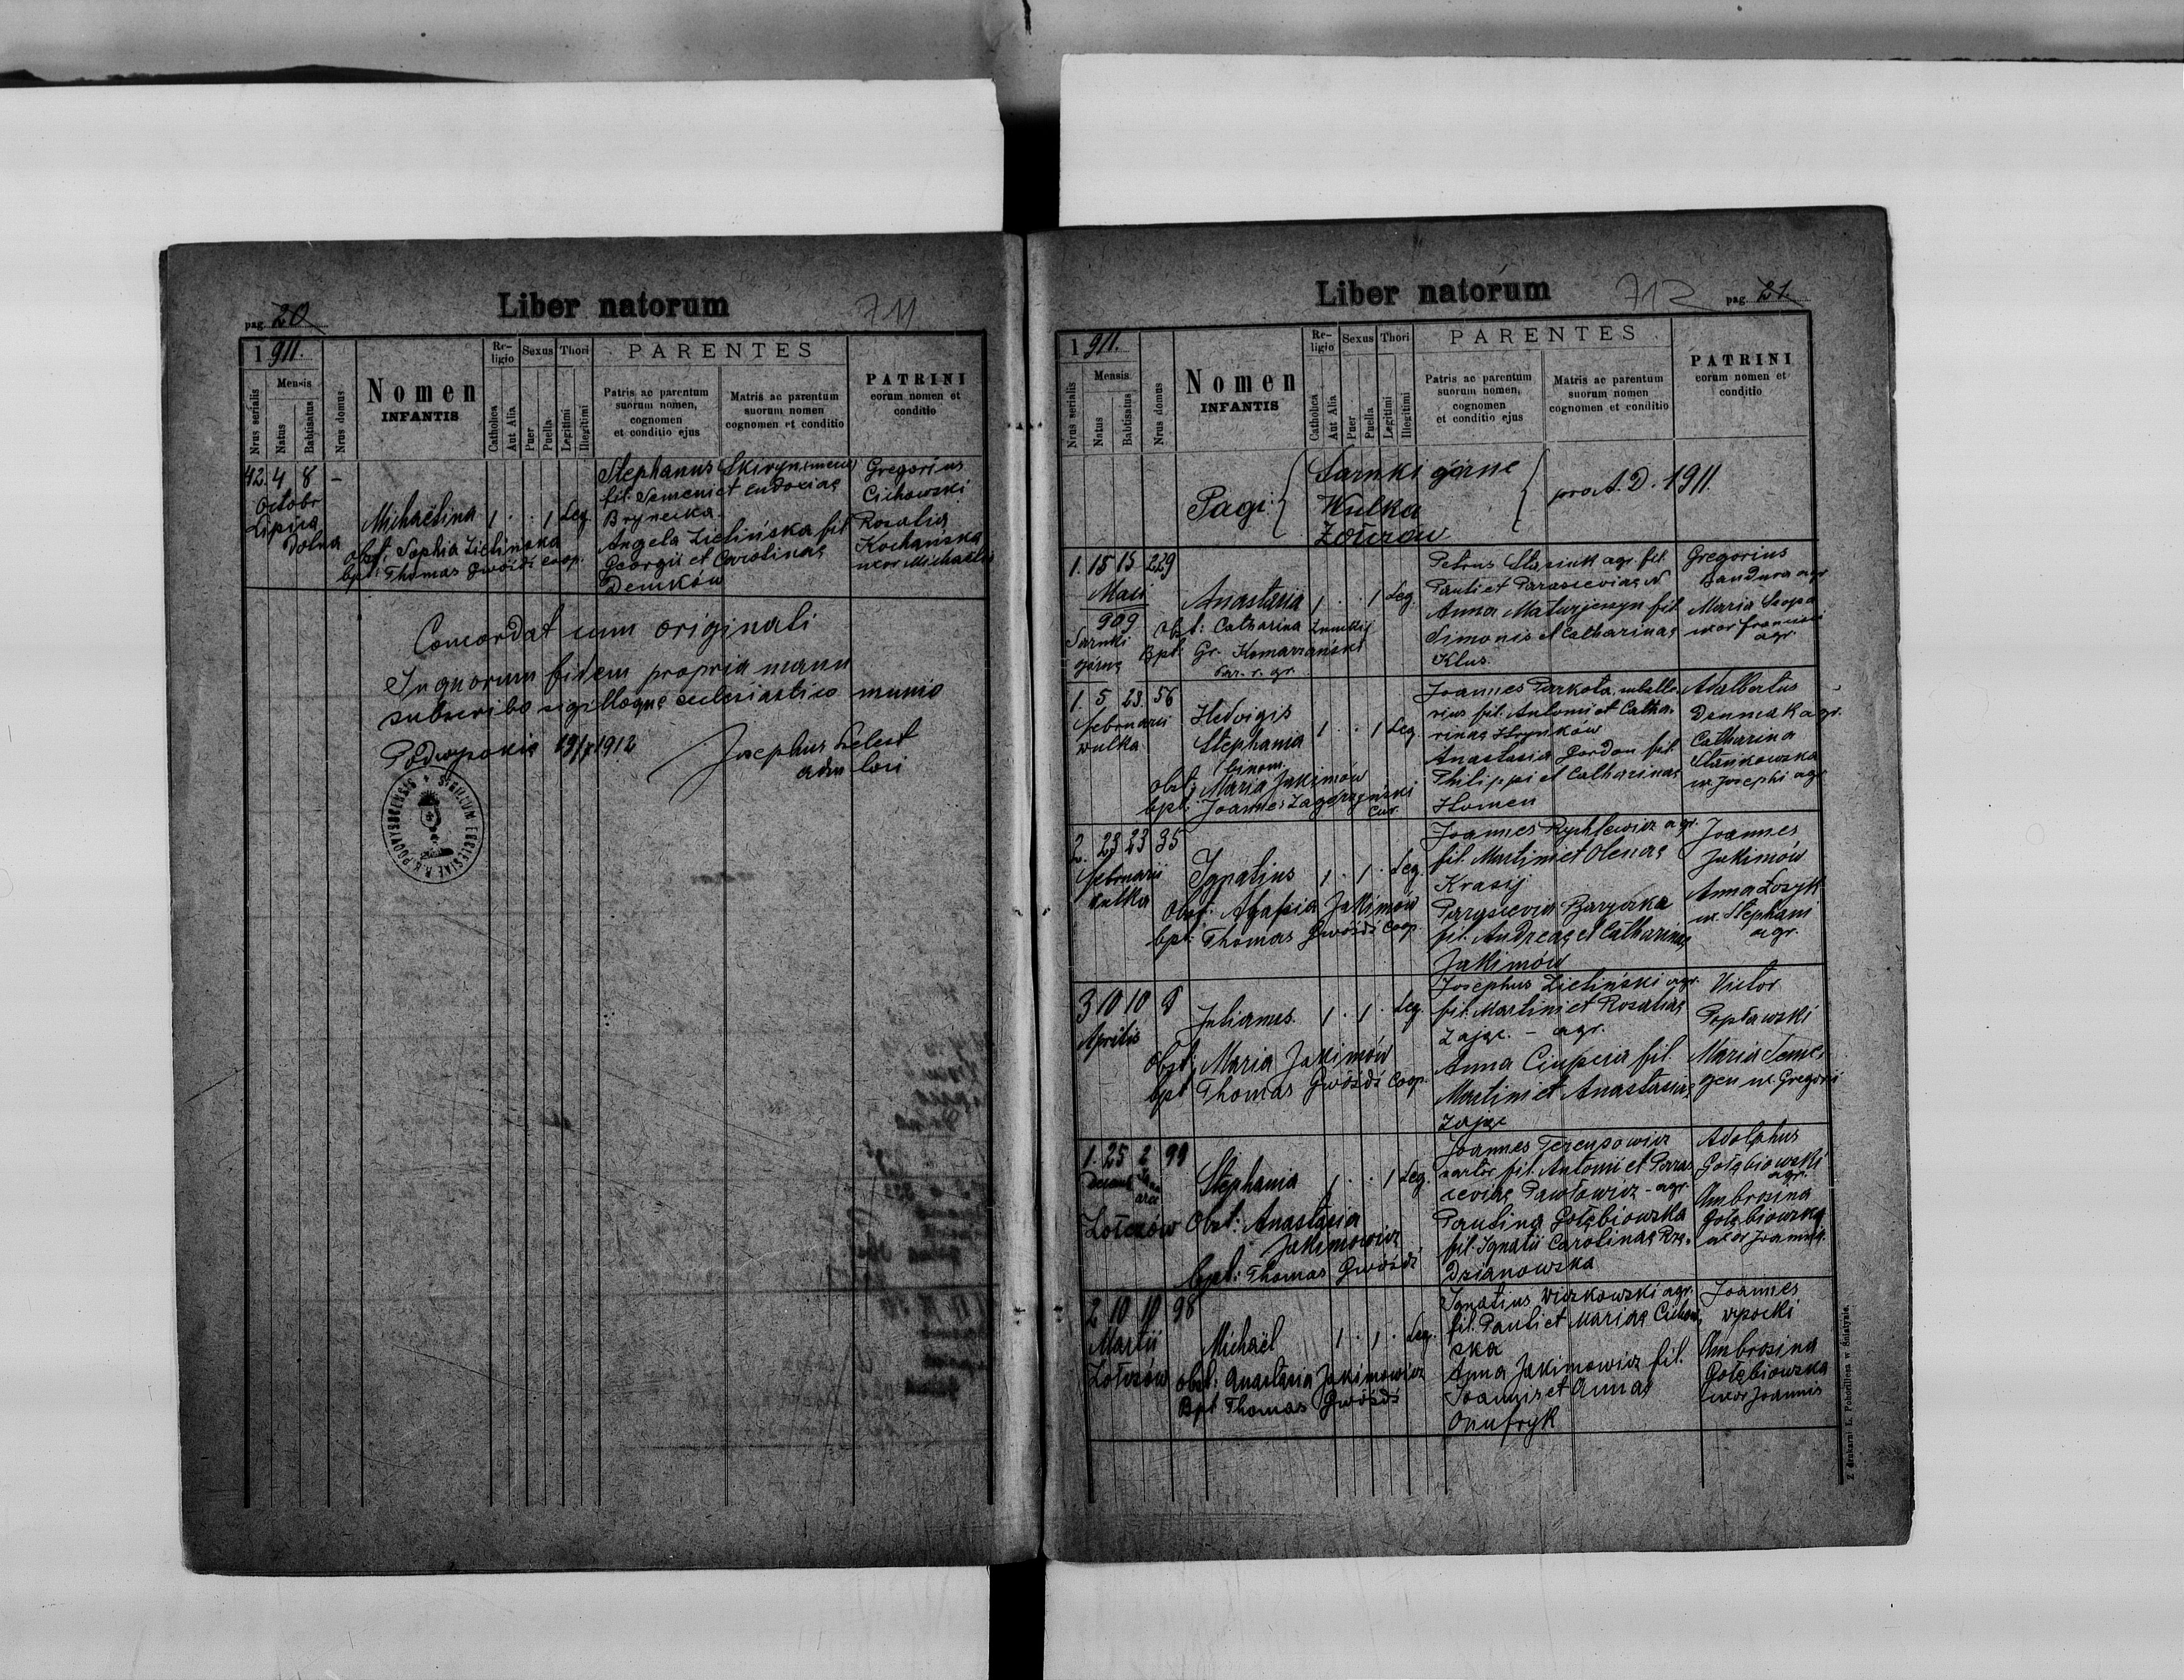 pag. 20
Liber natorum
711
1911.
Nrus serialis
Mensis
Natus
Babtisatus
Nrus domus
Nomen
INFANTIS
Re-
ligio
Catholica
Aut Alia
Sexus
Puer
Puella
Thori
Legitimi
Illegitimi
PARENTES
Patris ac parentum
suorum nomen,
cognomen
et conditio ejus
Matris ac parentum
suorum nomen
cognomen et conditio
PATRINI
eorum nomen et
conditio
42. 4 8 -
Octobr
Lipica
Dolna
Michaëlina 1 . . 1 Leg.
obst: Sophia Zielinska
bpt: Thomas Gwóźdź coop.
Stephanus
fil. Semeni et Eudoxiae
Brynecka
Angela Zielińska fil.
Georgii et Carolinae
Demków
Gregorius
Cichowski
Rosalia
Kochańska
uxor Michaelis
Concordat cum originali
In quorum fidem propria manu
subscribo sigilloque ecclesiastico munio
1912
Josephus
adm loci
SIGILLUM ECCLESIAE
Liber natorum
712
pag. 21.
1911.
Nrus serialis
Mensis
Natus
Babtisatus
Nrus domus
Nomen
INFANTIS
Re-
ligio
Catholica
Aut Alia
Sexus
Puer
Puella
Thori
Legitimi
Illegitimi
PARENTES
Patris ac parentum
suorum nomen,
cognomen
et conditio ejus
Matris ac parentum
suorum nomen
cognomen et conditio
PATRINI
eorum nomen et
conditio
Pagi:
Sarnki górne
Wulka
Zołczów
pro A. D. 1911.
1. 15 15 229
Maii
909
Sarnki
górne
Anastasia 1 . . 1 Leg.
obst: Catharina
Bpt: Gr. Komarzański
par. r. gr.
Petrus Stasiuk agr. fil.
Pauli et Parasceviae
Anna fil.
Simonis et Catharinae
Klus.
Gregorius
Bandura agr
Maria
uxor Francisci
agr.
1. 5 23 56
Februarii
Wulka
Hedvigis
Stephania 1 . . 1 Leg.
binom.
obst: Maria Jakimów
bpt: Joannes Zagórzyński
Joannes Parkota
fil. Antonii et Catha-
rinae Hrynków
Anastasia Gordon fil.
Philippi et Catharinae
Homen
Adalbertus
agr.
Catharina
Stankowska
ux. Josephi agr.
2. 23 23 35
Februarii
Wulka
Ignatius 1 . 1 . Leg.
Obst: Agafia Jakimów
bpt: Thomas Gwóźdź Coop.
Joannes Rychlewicz agr.
fil. Martini et Olenae
Krasij
fil. Andreae et Catharinae
Jakimów
Joannes
Jakimów
Anna Łosyk
ux. Stephani
agr.
3 10 10 8
Aprilis
Julianus. 1 . 1 . Leg.
obst: Maria Jakimów
bpt Thomas Gwóźdź Coop.
Josephus Zieliński agr.
fil. Martini et Rosaliae
Zając. - agr.
Anna Ciupcia fil.
Martini et Anastasiae
Zając
Victor
Popławski
Maria
ux. Gregorii
1. 25 2 99
Zołczów
Stephania 1 . . 1 Leg.
Obst: Anastasia
Jakimowicz
bpt: Thomas Gwóźdź
Joannes
sartor fil. Antonii et Paras-
ceviae Pawłowicz - agr.
Paulina Gołębiowska
fil. Ignatii Carolinae Rzę-
dzianowska
Adolphus
Gołębiowski
agr.
Ambrosina
Gołębiowska
uxor Joannis.
2 10 10 98
Martii
Zołczów
Michaël 1 . 1 . Leg.
obst: Anastasia Jakimowicz
Bpt Thomas Gwóźdź
Ignatius agr.
fil. Pauli et Mariae Cichow-
ska
Anna Jakimowicz fil.
Joannis et Annae
Onufryk
Joannes
Ambrosina
Gołębiowska
uxor Joannis
Z drukarni L. Pohorillesa w Śniatynie.